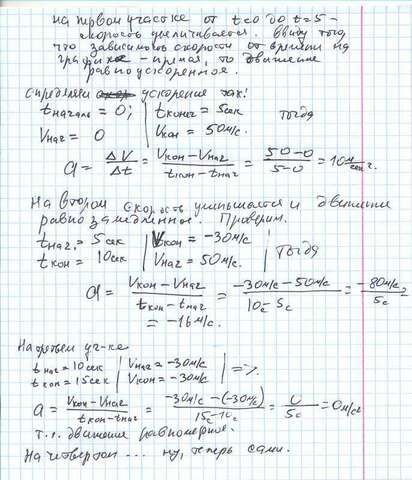 на первом участке от t=0 до t=5 -
скорость увеличивается. Ввиду того,
что зависимость скорости от времени на
графике - прямая, то движение
равноускоренное.
Определяем ускорение так:
tначало = 0; | tконеч = 5сек тогда
Vнач = 0 | Vкон = 50м/с.
a = ΔV/Δt = Vкон-Vнач/tкон-tнач = 50-0/5-0 = 10 м/сек².
На втором скорость уменьшается и движение
равнозамедленное. Проверим.
tнач. = 5сек | Vкон = -30м/с | Тогда
tкон = 10сек | Vнач = 50м/с. |
a = Vкон-Vнач/tкон-tнач = -30м/с-50м/с/10с-5с = -80м/с/5с =
= -16м/с.
На третьем уч-ке
tнач = 10сек | Vнач = -30м/с | =>
tкон = 15сек | Vкон = -30м/с |
a = Vкон-Vнач/tкон-tнач = -30м/с-(-30м/с)/15с-10с = 0/5с = 0м/с²
т.е. движение равномерное.
На четвертом ... ну, теперь сами.